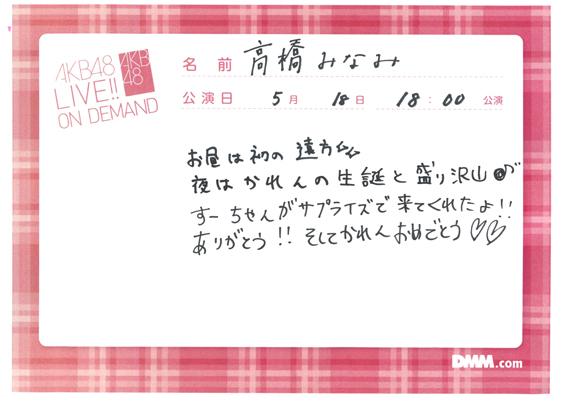 AKB48
LIVE!!
ON DEMAND
AKB
48
名前 高橋みなみ
公演日 5月 18日 18:00 公演
お昼は初の遠方☆☆
夜はかれんの生誕と盛り沢山♪
すーちゃんがサプライズで来てくれたよ!!
ありがとう!! そしてかれんおめでとう♡♡
DMM.com